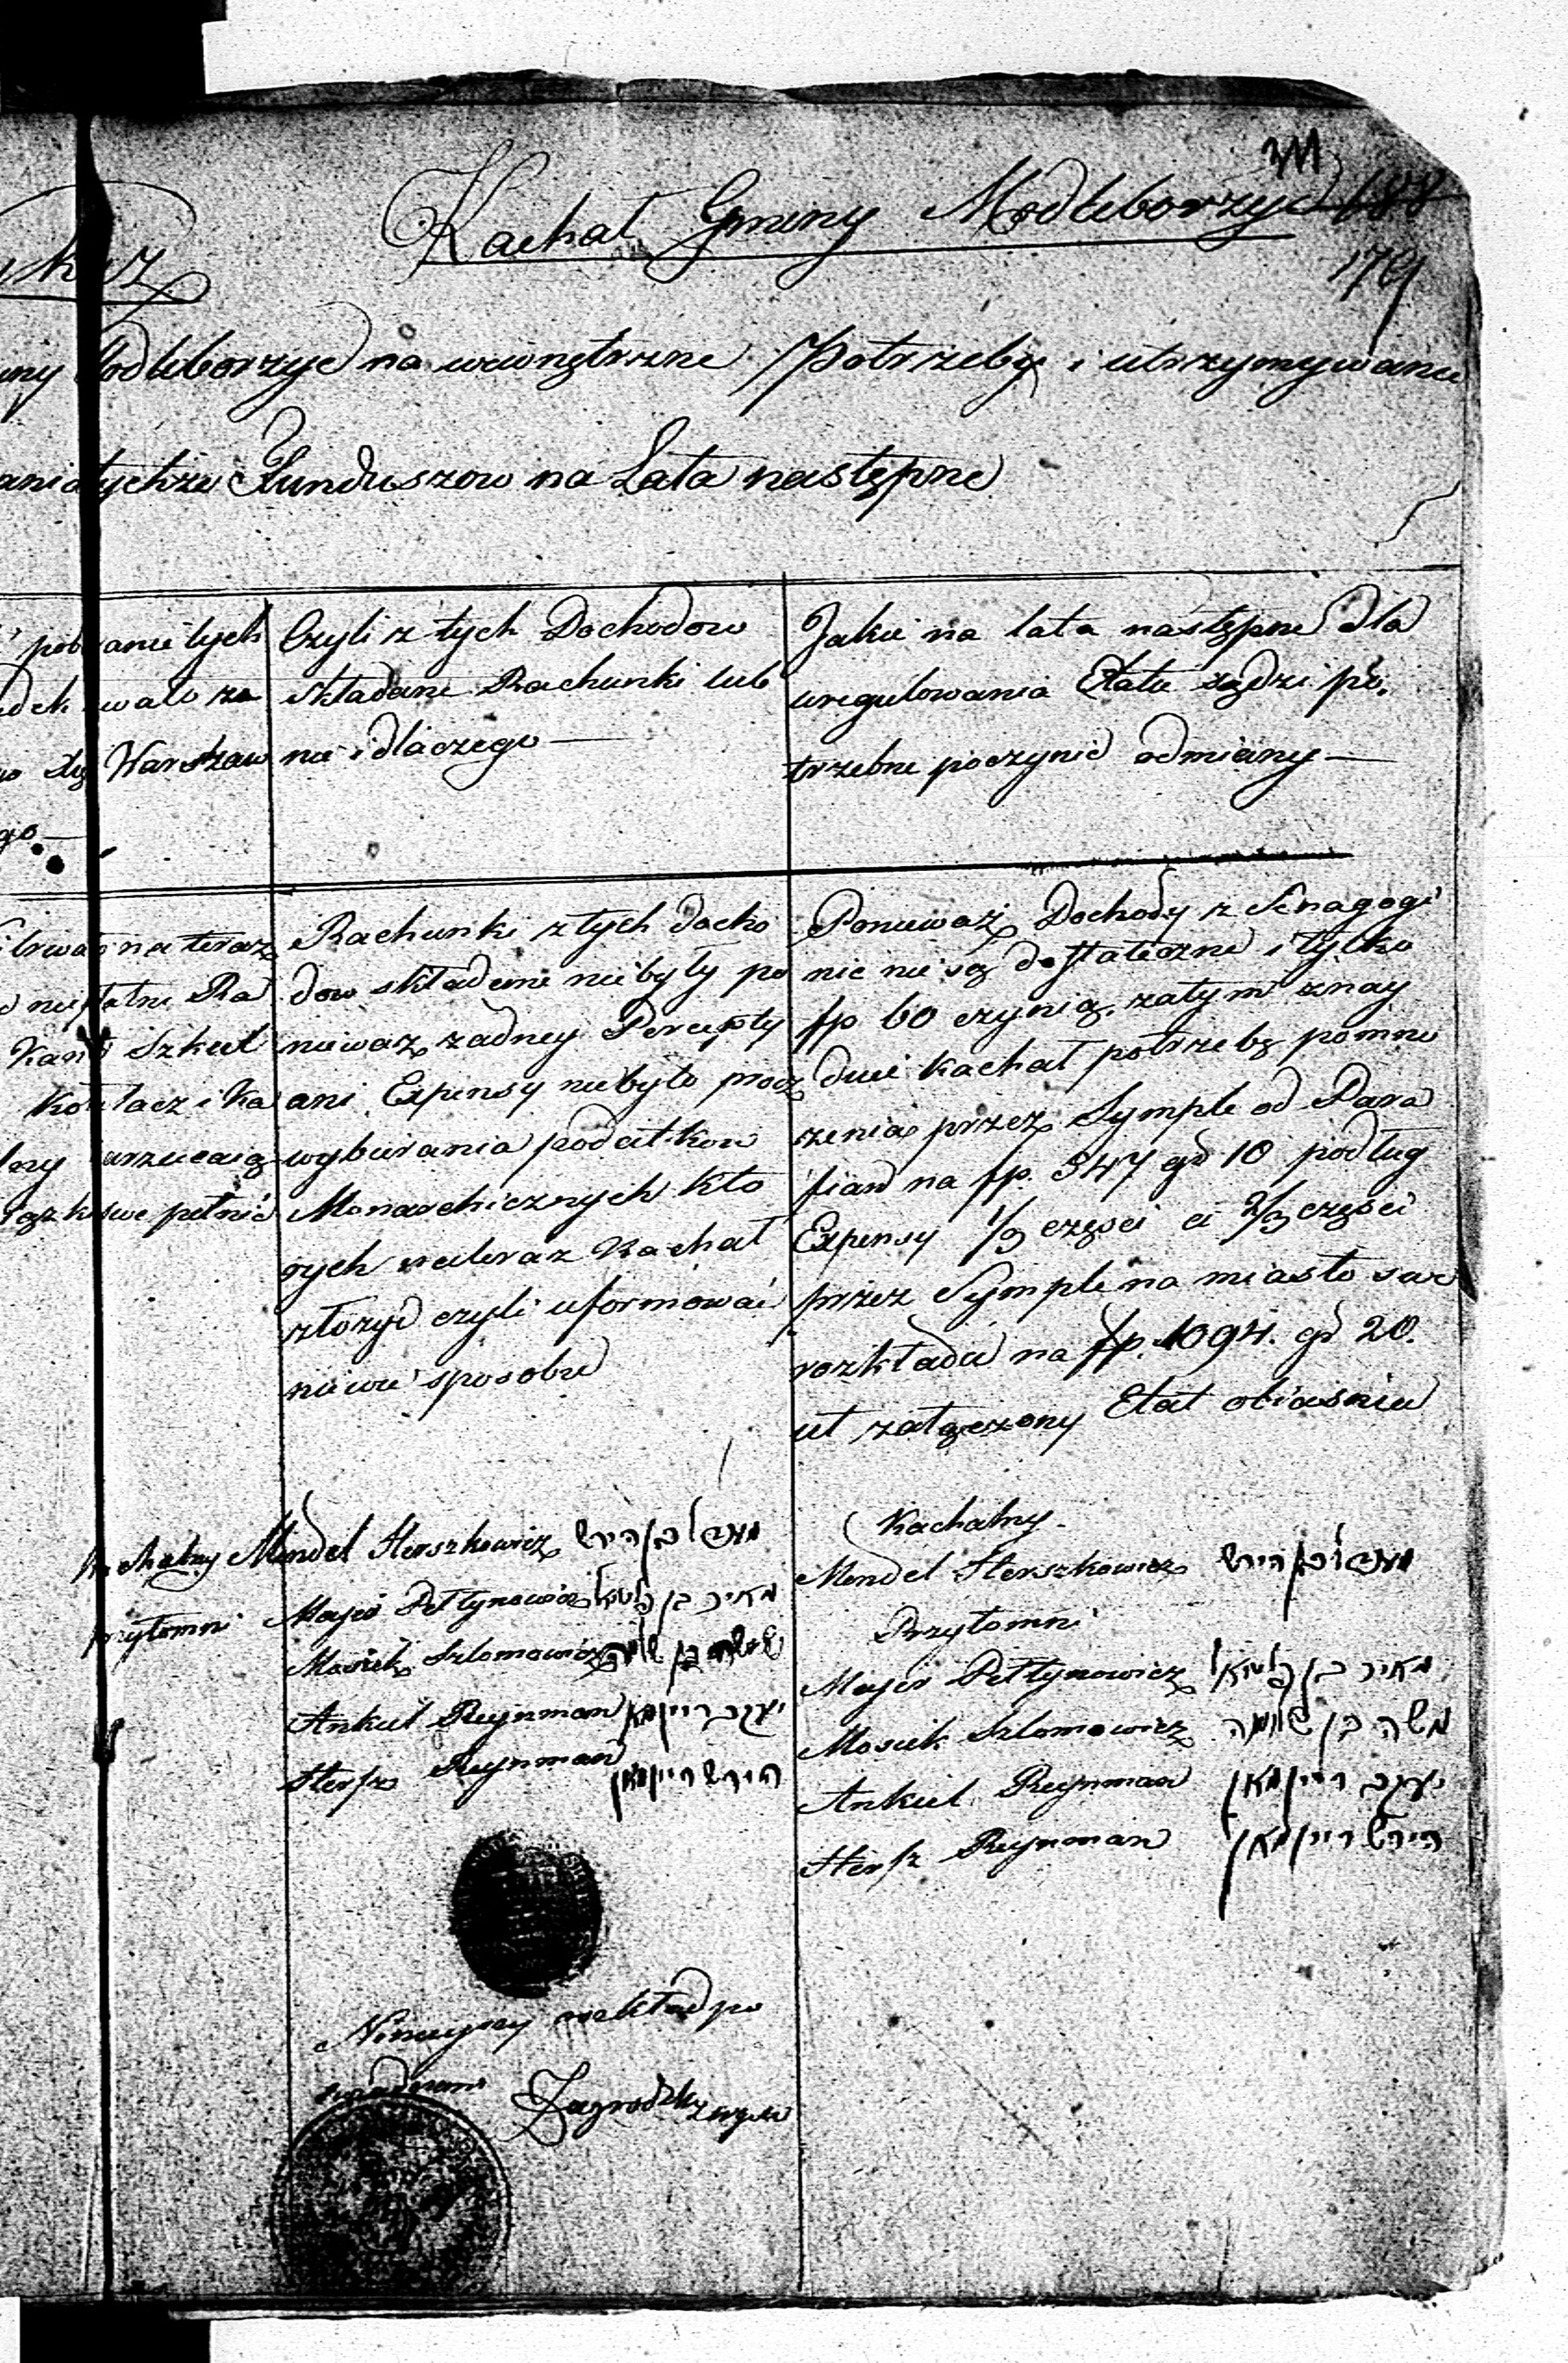 311
Kachał Gminy Modleborzyc 188
179
kaz
iny Modleborzyc na wewnętrzne Potrzeby i utrzymywanie
ania tychże Funduszow na Lata następne
pobranie tych
wało za
Warszaw
go
Czyli z tych Dochodow
składane Rachunki lub
nie i dlaczego
Jakie na lata następne dla
uregulowania Etatu sądzi po
trzebne poczynić odmiany
trwa na teraz
niepłatni Ra
Szkul
i Ka
narzucaią
pełnić
Rachunki z tych docho
dow składane nie były po
niewaz zadney Percepty
ani Expensy nie było procz
wybierania podatkow
Monarchicznych kto
rych na teraz Kachał
złożyć czyli uformować
nie wie sposobu
Ponieważ Dochody z Senagogi
nic nie są dostateczne i tylko
fp 60 czynią zatym znay
duie kachał potrzebę pomno
żenia przez Symple od Para
fian na fp. 547 gr 10 podług
Expensy 1/3 części a 2/3 części
przez Symple na miasto sue
rozkładu na fp. 1094. gr 20.
ut załączony Etat obiasnia
Kachalny Mendel Herszkowicz מענדל בן הירש
przytomni Mayer Peltynowicz מאיר בן פלטיאל
Mosiek Szlomowicz משה בן שלמה
Ankiel Reynman יעקב ריינמאן
Hersz Reynman הירש ריינמאן
Kachalny
Mendel Herszkowicz מענדל בן הירש
Przytomni
Mayer Peltynowicz מאיר בן פלטיאל
Mosiek Szlomowicz משה בן שלמה
Ankiel Reynman יעקב ריינמאן
Hersz Reynman הירש ריינמאן
Ninieyszy rozkład po
swiadczam Zagrodzki